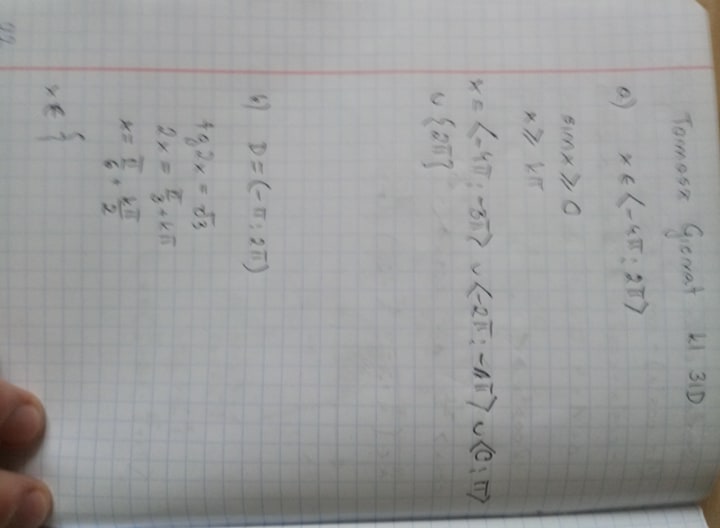 Tomasz kl 31D
a) x ∈ ⟨-4π ; 2π⟩
sinx ⩾ 0
x ⩾ kπ
x = ⟨-4π ; -3π⟩ ∪ ⟨-2π ; -1π⟩ ∪ ⟨0 ; π⟩
∪ {2π}
b) D = (-π ; 2π)
tg2x = √3
2x = π/3 + kπ
x = π/6 + kπ/2
x ∈ {
22